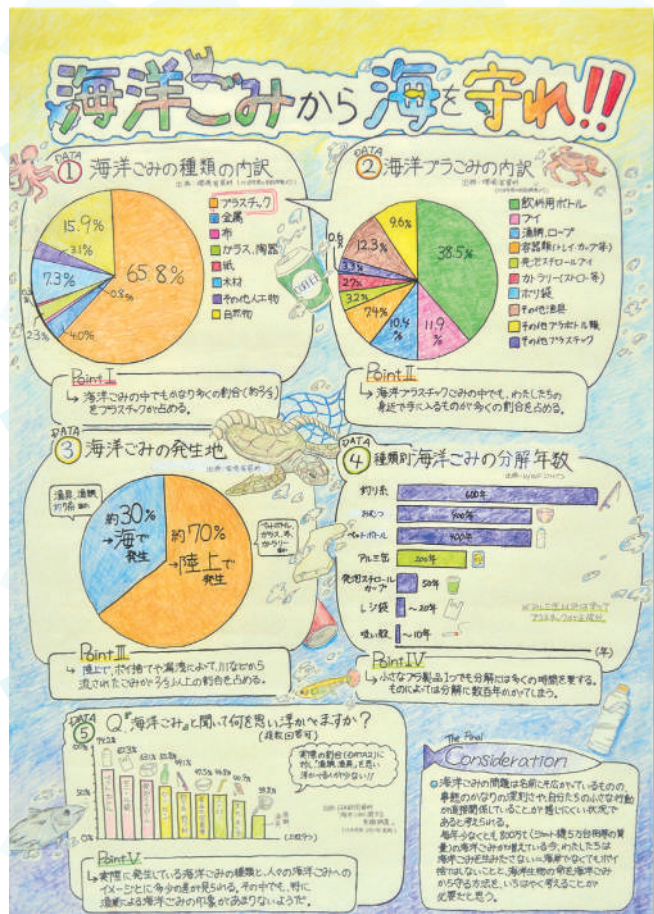 海洋ごみから海を守れ!!
DATA
① 海洋ごみの種類の内訳
プラスチック
金属
布
ガラス、陶器
紙
木材
その他人工物
自然物
65.8%
15.9%
3.1%
7.3%
2.3%
4.0%
0.8%
Point I
↳ 海洋ごみの中でもかなり多くの割合(約2/3)
をプラスチックが占める。
DATA
② 海洋プラごみの内訳
飲料用ボトル
ブイ
漁網、ロープ
容器類(トレイ・カップ等)
発泡スチロールブイ
カトラリー(ストロー等)
ポリ袋
その他漁具
その他プラボトル類
その他プラスチック
38.5%
11.9%
10.4%
7.4%
3.2%
2.7%
3.3%
0.6%
12.3%
9.6%
Point II
↳ 海洋プラスチックごみの中でも、わたしたちの
身近で手に入るものが多くの割合を占める。
DATA
③ 海洋ごみの発生地
約30%
→海で
発生
約70%
→陸上で
発生
Point III
↳ 陸上で、ポイ捨てや漏洩によって、川などから
流されたごみが2/3以上の割合を占める。
DATA
④ 種類別海洋ごみの分解年数
釣り糸 600年
おむつ 400年
ペットボトル 400年
アルミ缶 200年
発泡スチロール
カップ 50年
レジ袋 ～20年
吸い殻 ～10年
(年)
Point IV
↳ 小さなプラ製品1つでも分解には多くの時間を要する。
ものによっては分解に数百年かかってしまう。
DATA
⑤ Q.『海洋ごみ』と聞いて何を思い浮かべますか?
(複数回答可)
100%
50%
0%
実際の割合(DATA2)に
対し「漁網、漁具」を思い
浮かべる人が少ない!!
Point V
↳ 実際に発生している海洋ごみの種類と、人々の海洋ごみへの
イメージとに多少の差が見られる。その中でも、特に
漁網による海洋ごみの印象があまりないようだ。
The Final
Consideration
海洋ごみの問題は名前こそ広がっているものの、
事態のかなりの深刻さや、自分たちの小さな行動
が直接関係していることが感じにくい状況で
あると考えられる。
毎年少なくとも800万t(ジャンボ機5万台相当の質
量)の海洋ごみが増えている今、わたしたちは
海洋ごみを生みださない=海岸でなくてもポイ
捨てはしないことと、海洋生物の命を海洋ごみ
から守る方法を、いちはやく考えることが
必要だと思う。